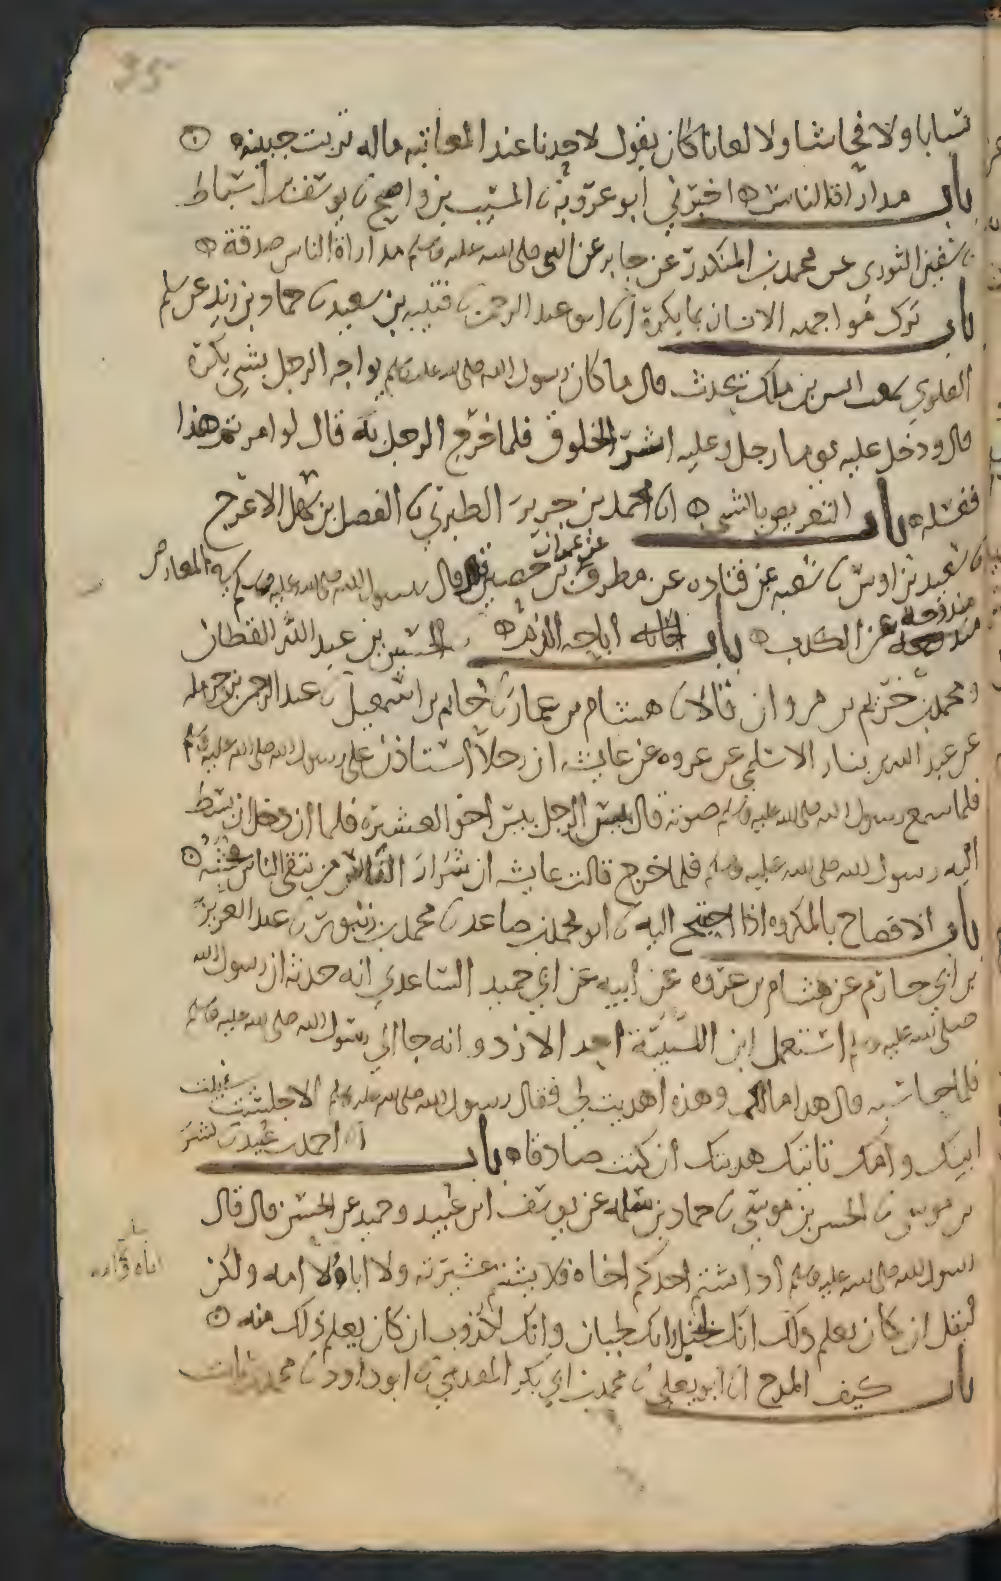 35
سبابا ولا فحاشا ولا لعانا كان يقول لاحدنا عند المعاتبه ماله تربت جبينه
باب مداراة الناس اخبرني ابو عروبة ثنا المسيب بن واضح ثنا يوسف بن اسباط
ثنا سفين الثوري عن محمد بن المنكدر عن جابر عن النبي صلى الله عليه وسلم مداراة الناس صدقة
باب ترك مواجهه الانسان بما يكرهه انا ابو عبد الرحمن ثنا قتيبه بن سعيد ثنا حماد بن زيد عن سلم
العلوي سمعت انس بن ملك يحدث قال ما كان رسول الله صلى الله عليه وسلم يواجه الرجل بشي يكرهه
قال ودخل عليه يوما رجل وعليه اثر الخلوق فلما خرج الرجل قال لو امرتم هذا
فغسله باب التعريض بالشي انا محمد بن جرير الطبري ثنا الفضل بن سهل الاعرج
ثنا سعيد بن اوس ثنا شعبه عن قتاده عن مطرف عن عمران بن حصين قال قال رسول الله صلى الله عليه وسلم ان في المعاريض
مندوحة
مندوحه عن الكذب باب الحسين بن عبد الله القطان
ومحمد بن خزيم بن مروان قالا ثنا هشام بن عمار ثنا حاتم بن اسمعيل ثنا عبد الرحمن بن حرمله
عن عبد الله بن نيار الاسلمي عن عروه عن عايشه ان رجلا استاذن على رسول الله صلى الله عليه وسلم
فلما سمع رسول الله صلى الله عليه وسلم صوته قال بيس الرجل بيس اخو العشيرة فلما ان دخل انبسط
اليه رسول الله صلى الله عليه وسلم فلما خرج قالت عايشه ان شرار الناس من يتقى الناس فحشه
باب الافصاح بالمكروه اذا احتيج اليه ثنا ابو محمد بن صاعد ثنا محمد بن زنبور ثنا عبد العزيز
بن ابي حازم عن هشام بن عروه عن ابيه عن ابي حميد الساعدي انه حدثه ان رسول الله
صلى الله عليه وسلم استعمل ابن اللتبية احد الازد وانه جا الى رسول الله صلى الله عليه وسلم
فلما حاسبه قال هذا مالكم وهذه اهديت لي فقال رسول الله صلى الله عليه وسلم الا جلست في بيت
ابيك وامك تاتيك هديتك ان كنت صادقا باب انا احمد بن عبيد بن بشر
بن موسى ثنا الحسن بن موسى ثنا حماد بن سلمه عن يوسف ابن عبيد وحميد عن الحسن قال قال
رسول الله صلى الله عليه وسلم اذا شتم احدكم اخاه فلا يشتم عشيرته ولا اباه ولا امه ولكن
ليقل ان كان يعلم ذلك انك لبخيل انك لجبان وانك لكذوب ان كان يعلم ذلك منه
باب كيف المدح انا ابو يعلى ثنا محمد بن ابي بكر المقدمي ثنا ابو داود ثنا محمد بن ثابت